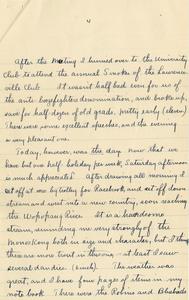 4
After the meeting I hurried over to the University
Club to attend the annual Smoker of the Lawrence-
ville Club. It wasn't half bad even for us of
the anti boozefighters denomination, and broke up,
save for half dozen of old grads, pretty early (eleven)
There were some excellent speeches, and the evening
a very pleasant one.
Today, however, was the day. Now that we
have but one half holiday per week, Saturday afternoon
is much appreciated. After drawing all morning I
set off at one by trolley for and set off down
stream and went into new country, soon reaching
the River. It is a handsome
stream, reminding me very strongly of the
both in size and character, but I think
there are more trout in this one - at least I saw
several dandies. (Ouch). The weather was
great, and I have four pages of items in my
note book. There were the Robins and Bluebirds